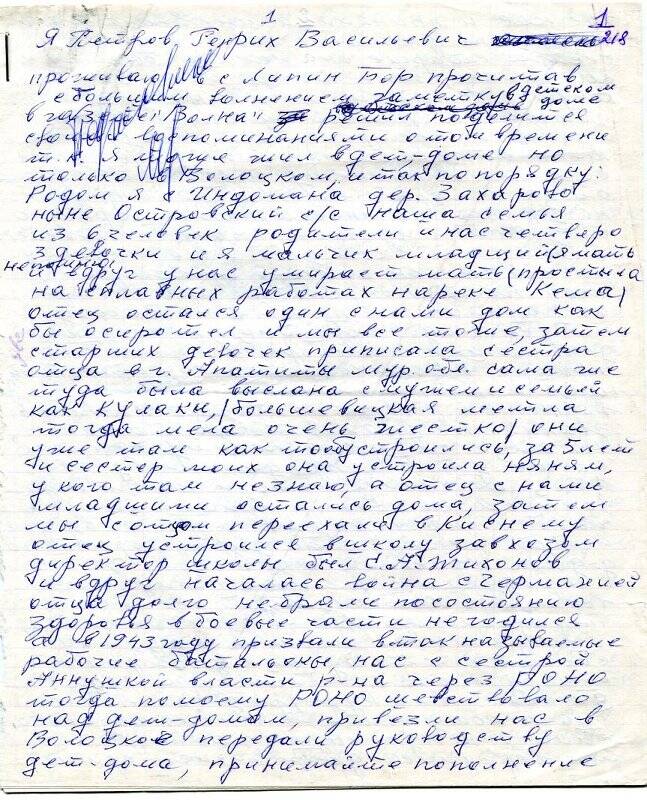 1
1
218
Я Петров Генрих Васильевич
проживаю в с Липин Бор прочитав
с большим волнением заметку в детском
в газете "Волна" доме
решил поделится
своими воспоминаниями о том времени
т.к. я тоже жил в дет-доме но
только в Волоцком, и так по порядку:
Родом я с Индомана дер. Захарово
ныне Островский с/с наша семья
из 6 человек родители и нас четверо
3 девочки и я мальчик младший (я мать
не помню)
и вдруг у нас умирает мать (простыла
на сплавных работах на реке Кема)
отец остался один с нами дом как
бы осиротел и мы все тоже, затем
старших девочек приписала сестра
отца в г. Апатиты Мур. обл. сама же
туда была выслана с мужем и семьей
как Кулаки, (большевицкая метла
тогда мела очень жестко) они
уже там как то обустроились, за 5 лет
и сестер моих она устроила няням,
у кого там незнаю, а отец с нами
младшими остались дома, затем
мы с отцом переехали в Киснему
отец устроился в школу завхозом
директор школы был С.А. Тихонов
и вдруг началась война с Германией
отца долго небрали по состоянию
здоровья в боевые части негодился
а в 1943 году призвали в так называемые
рабочие батальоны, нас с сестрой
Аннушкой власти р-на через РОНО
тогда помоему РОНО шевствовало
над дет-домом, привезли нас в
Волоцкое передали руководству
дет-дома, принимайте пополнение